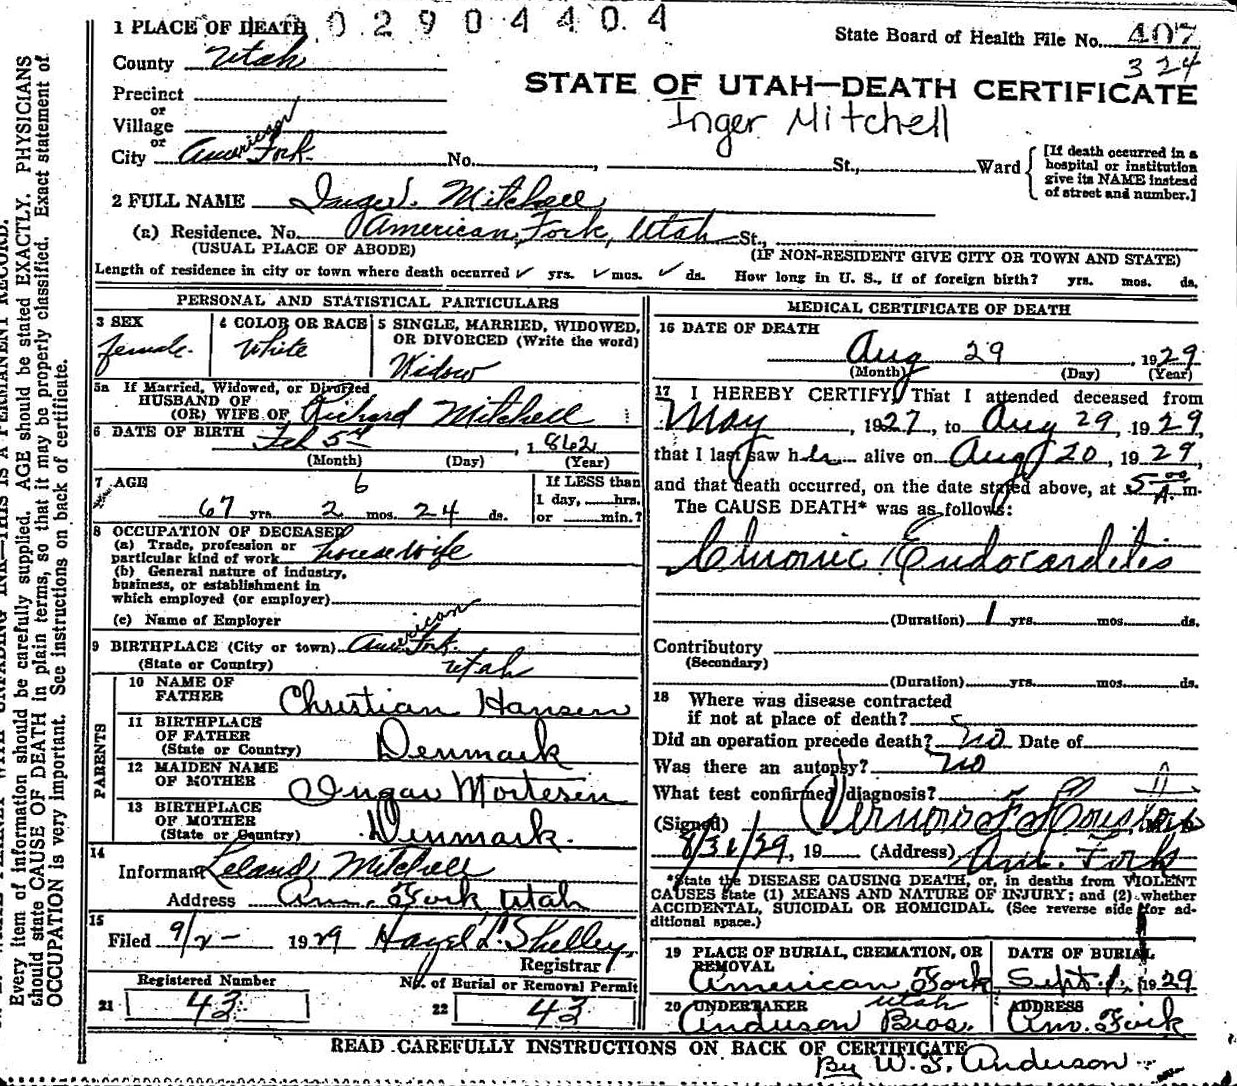 02904404
1 PLACE OF DEATH
State Board of Health File No. 407
324
County Utah
STATE OF UTAH—DEATH CERTIFICATE
Precinct
Inger Mitchell
or
Village
or
City American Fork No. , St., Ward
[If death occurred in a
hospital or institution
give its NAME instead
of street and number.]
2 FULL NAME Mitchell
(a) Residence. No. American Fork, Utah St.,
(USUAL PLACE OF ABODE) (IF NON-RESIDENT GIVE CITY OR TOWN AND STATE)
Length of residence in city or town where death occurred ✓ yrs. ✓ mos. ✓ ds. How long in U. S., if of foreign birth? yrs. mos. ds.
PERSONAL AND STATISTICAL PARTICULARS
3 SEX
female.
4 COLOR OR RACE
White
5 SINGLE, MARRIED, WIDOWED,
OR DIVORCED (Write the word)
Widow
5a If Married, Widowed, or Divorced
HUSBAND OF
(OR) WIFE OF Richard Mitchell
6 DATE OF BIRTH Feb 5th , 1862
(Month) (Day) (Year)
7 AGE 6
67 yrs. 2 mos. 24 ds.
If LESS than
1 day, hrs.
or min.?
8 OCCUPATION OF DECEASED
(a) Trade, profession or
particular kind of work housewife
(b) General nature of industry,
business, or establishment in
which employed (or employer)
(c) Name of Employer
9 BIRTHPLACE (City or town) American Fork.
(State or Country) Utah
PARENTS
10 NAME OF
FATHER Christian Hansen
11 BIRTHPLACE
OF FATHER
(State or Country) Denmark
12 MAIDEN NAME
OF MOTHER Mortesen
13 BIRTHPLACE
OF MOTHER
(State or Country) Denmark.
14
Informant Leland Mitchell
Address Am. Fork Utah
15
Filed 9/2- 1929 Hazel L. Shelley
Registrar
Registered Number
21 43
No. of Burial or Removal Permit
22 43
MEDICAL CERTIFICATE OF DEATH
16 DATE OF DEATH
Aug 29 , 1929
(Month) (Day) (Year)
17 I HEREBY CERTIFY, That I attended deceased from
May , 1927, to Aug 29, 1929,
that I last saw her alive on Aug 20, 1929,
and that death occurred, on the date stated above, at 5 00 A. m.
The CAUSE DEATH* was as follows:
Chronic Endocarditis
(Duration) 1 yrs. mos. ds.
Contributory
(Secondary)
(Duration) yrs. mos. ds.
18 Where was disease contracted
if not at place of death?
Did an operation precede death? no Date of
Was there an autopsy? no
What test confirmed diagnosis?
(Signed) Vernon F. Houston
, 19 (Address) Am. Fork
*State the DISEASE CAUSING DEATH, or, in deaths from VIOLENT
CAUSES state (1) MEANS AND NATURE OF INJURY; and (2) whether
ACCIDENTAL, SUICIDAL OR HOMICIDAL. (See reverse side for ad-
ditional space.)
19 PLACE OF BURIAL, CREMATION, OR
REMOVAL
American Fork
Utah
DATE OF BURIAL
Sept. 1, 1929
20 UNDERTAKER
Anderson Bros.
ADDRESS
Am. Fork
READ CAREFULLY INSTRUCTIONS ON BACK OF CERTIFICATE
By W. S. Anderson
Every item of information should be carefully supplied. AGE should be stated EXACTLY. PHYSICIANS
should state CAUSE OF DEATH in plain terms, so that it may be properly classified. Exact statement of
OCCUPATION is very important. See instructions on back of certificate.